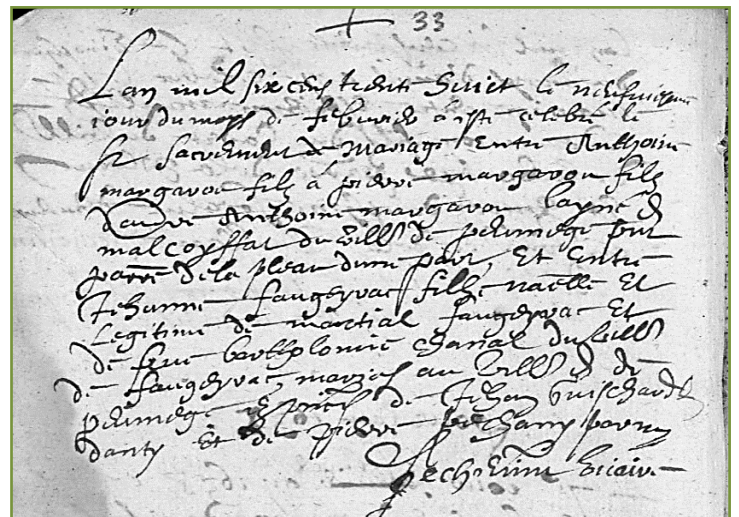 33
Lan mil six cens trente huict le neufviesme
jour du moys de febvrier a este celebré le
St Sacrement de Mariage Entre Anthoine
margarou filz à pierre margarou filz
dautre Anthoine margarou layné
malcoyffat du villa de peumege
parre de la pleau dune part, Et Entre
Jehanne faugeyrac fille naëlle Et
Legitime de martial faugeyrac Et
de feue barthelomie chanal du villa
de faugeyrac, mariés au villa de
peumege pnces de Jehan Guischard
Et de pierre
vicaire